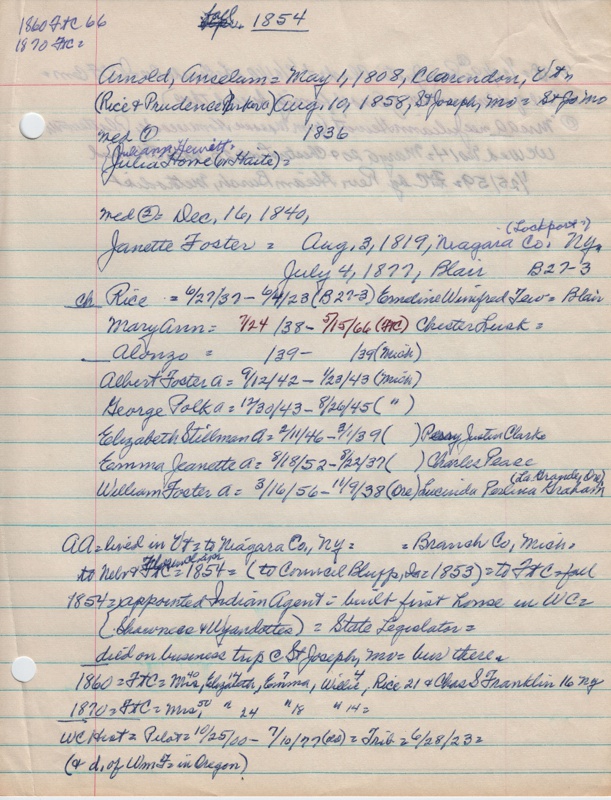 1860 FtC 66
1870 FtC =
1854
Arnold, Anselam = May 1, 1808, Clarendon, Vt =
(Rice & Prudence Parkers) Aug, 10, 1858, St Joseph, Mo = St Jo Mo
med ① 1836
Juliann Hewitt =
Julia Home (or Haite) =
med ② = Dec, 16, 1840,
(Lockport?)
Janette Foster = Aug, 3, 1819, Niagara Co, Ny,
July 4, 1877, Blair B27-3
ch Rice = 6/27/37 - 6/4/23 (B27-3) Winifred Tew = Blair
Mary Ann = 7/24 /38 - 5/15/66 (FtC) Chester Lusk =
Alonzo = /39 - /39 (Mich)
Albert Foster A = 9/12/42 - 1/23/43 (Mich)
George Polk A = 12/30/43 - 8/26/45 ( " )
Elizabeth Stillman A = 2/11/46 - 3/1/39 ( ) Perry Justin Clarke
Emma Jeanette A = 8/18/52 - 8/22/37 ( ) Charles Peace
(La Grande, Ore)
William Foster A = 3/16/56 - 11/9/38 (Ore) Lucinda Perlina Graham
AA = lived in Vt = to Niagara Co, Ny = = Branch Co, Mich =
to Nebr & FtC = 1854 = (to Council Bluffs, Ia = 1853) = to FtC = fall
1854 = appointed Indian Agent = built first house in WC =
(Shawnees & Wyandottes) = State Legislator =
died on business trip @ St Joseph, Mo = bur there.
1860 = FtC = Mrs, 40 Elizabeth, 14 Emma, 7 Willie, 4 Rice 21 & Chas S Franklin 16 Ny
1870 = FtC = Mrs, 50 " 24 " 18 " 14 =
WC Hist = Pilot = 10/25/00 - 7/10/77 (ob) = Trib = 6/28/23 =
(& d. of Wm F = in Oregon)